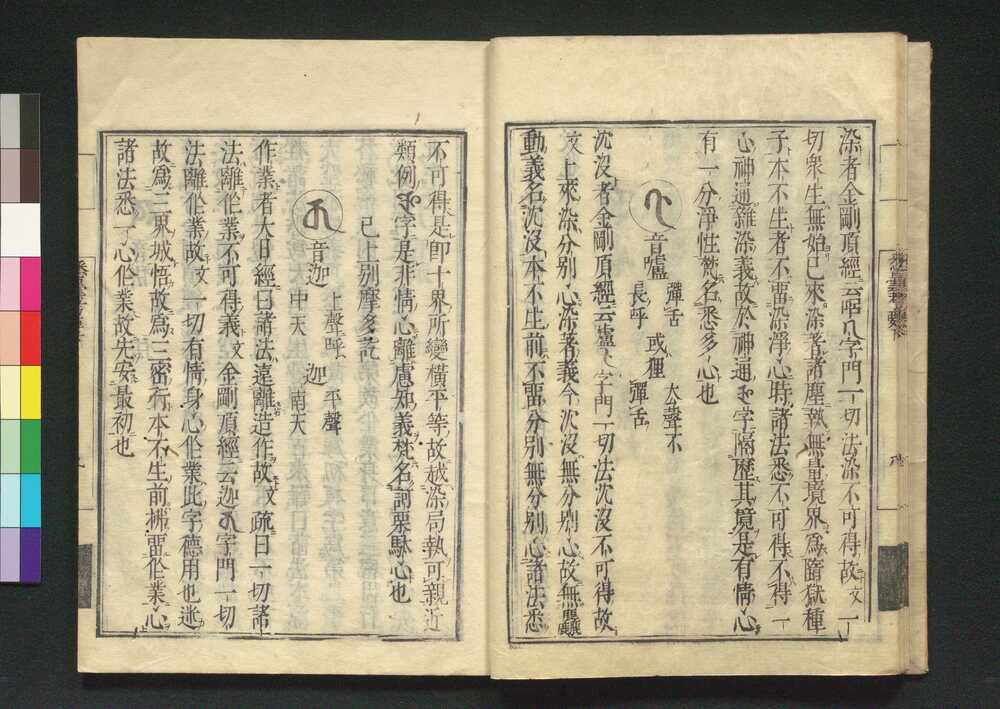 染者金剛頂經云呬字門一切法染不可得故文一
切衆生無始已來染著諸塵執無量境界爲墮獄種
子本不生者不留染淨心時諸法悉不可得不得一
心神通雜染義故於神通字隔歷其境是有情心
有一分淨性梵名悉多心也
音嚧 彈舌長呼 或狸 去聲不彈舌
沈沒者金剛頂經云嚧字門一切法沈沒不可得故
文上來染分別心染著義今沈沒無分別心故無麤
動義名沈沒本不生前不留分別無分別心諸法悉
不可得是即十界所變橫平等故越染局執可親近
類例字是非情心離慮知義梵名訶栗馱心也
已上別摩多訖
音迦 上聲呼中天 迦 平聲南天
作業者大日經曰諸法遠離造作故文疏曰一切諸
法離作業不可得義文金剛頂經云迦字門一切
法離作業故文一切有情身心作業此字德用也迷
故爲三界城悟故爲三密行本不生前拂留作業心
諸法悉了心作業故先安最初也